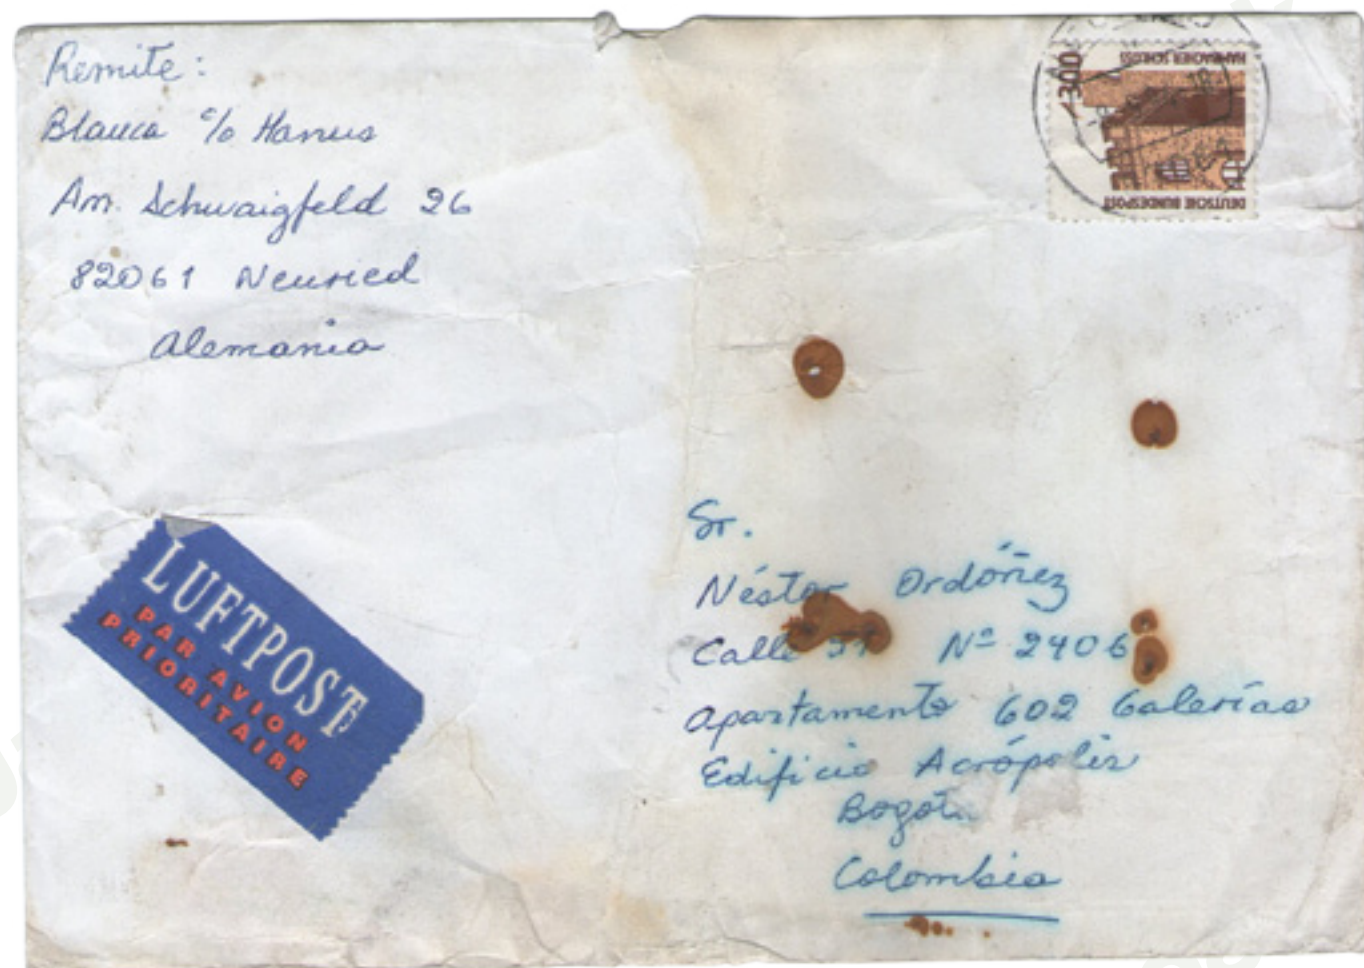 Remite:
Blanca c/o Hanus
Am Schwaigfeld 26
82061 Neuried
Alemania
300
HAMBACHER SCHLOSS
DEUTSCHE BUNDESPOST
LUFTPOST
PAR AVION
PRIORITAIRE
Sr.
Néstor Ordóñez
Calle Nº 2406
Apartamento 602 Galerías
Edificio Acrópolis
Bogotá
Colombia